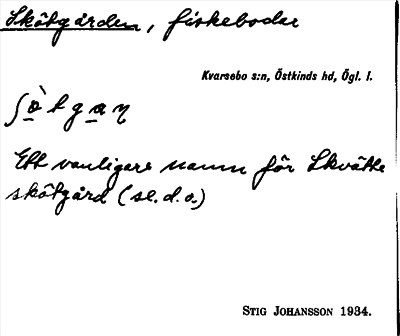 Skötgården, fiskebodar
Kvarsebo s:n, Östkinds hd, Ögl. l.
ʃö̀tgaɳ
Ett vanligare namn för Skvätte
skötgård (se. d. o.)
STIG JOHANSSON 1934.